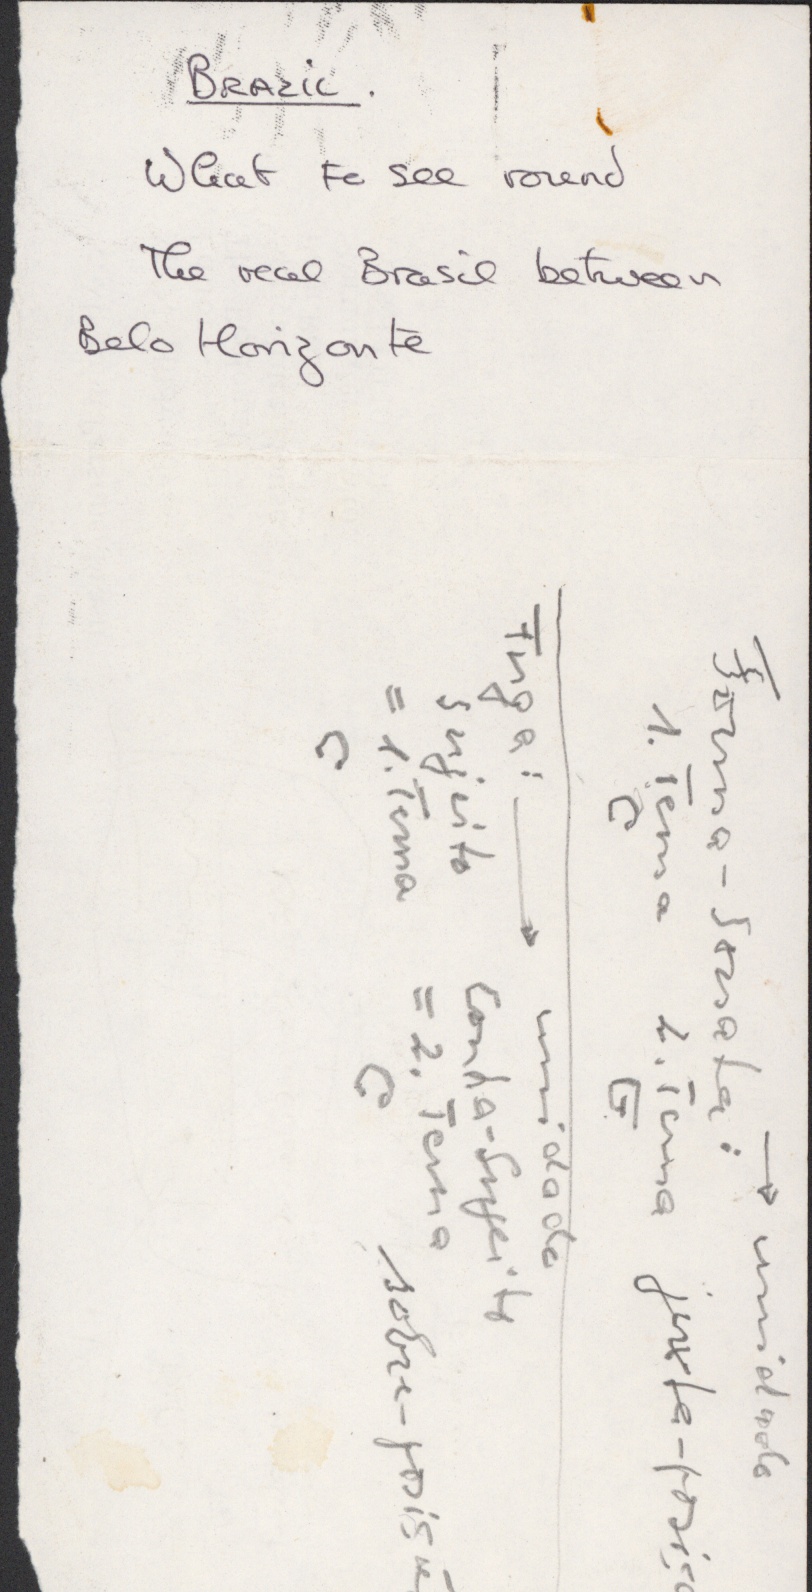 BRAZIL.
What to see round
The real Brasil between
Belo Horizonte
Forma-Sonata: → unidade
1. Tema 2. Tema justa-posiç
C G
Fuga: → unidade
Sujeito Contra-Sujeito
= 1. Tema = 2. Tema
C C sobre-posiçã